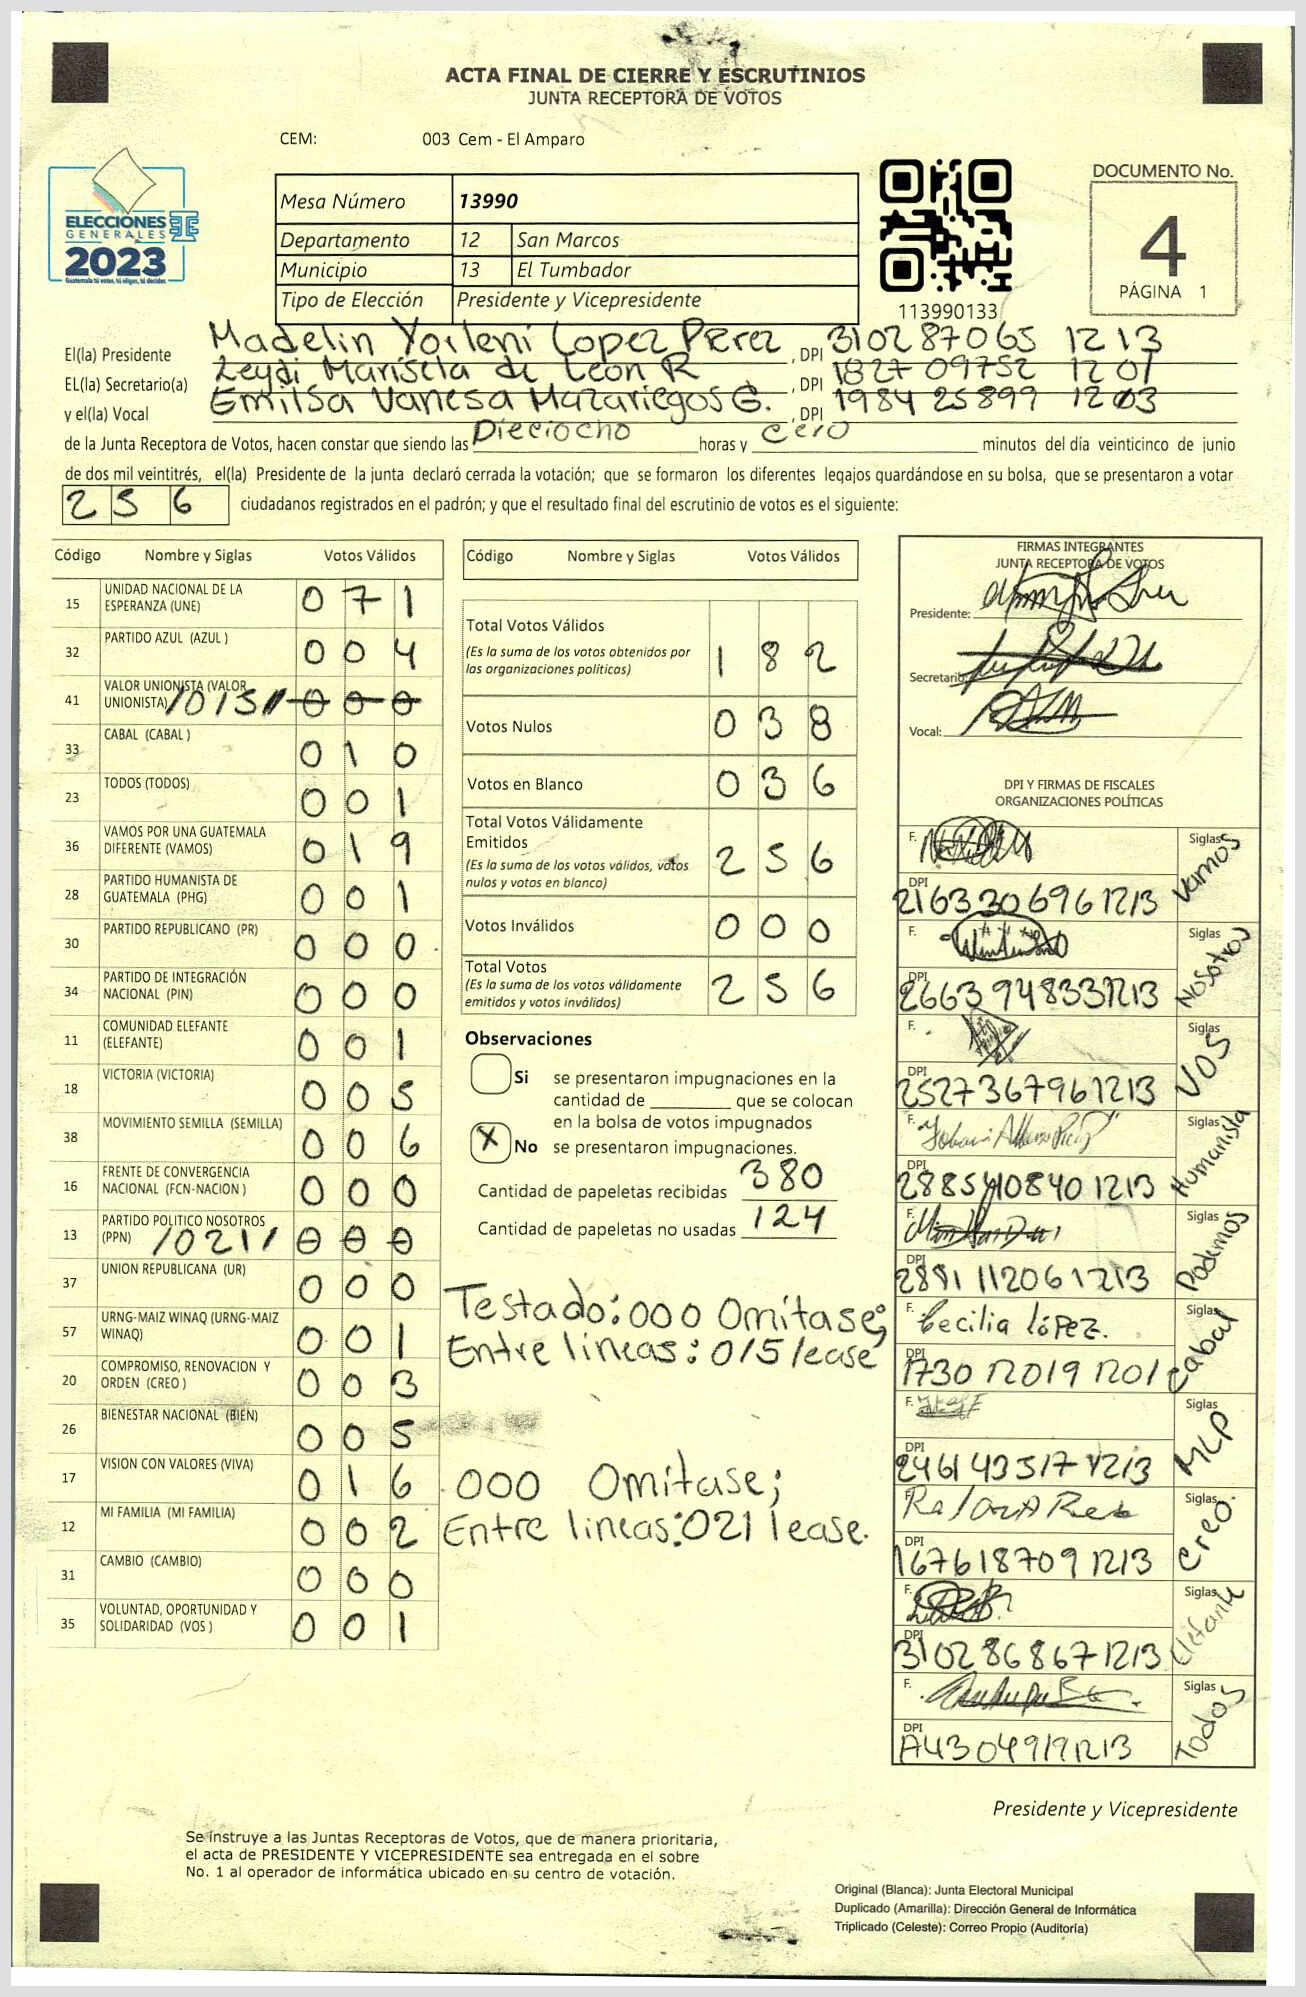 ACTA FINAL DE CIERRE Y ESCRUTINIOS
JUNTA RECEPTORA DE VOTOS
CEM: 003 Cem - El Amparo
ELECCIONES
GENERALES
2023
Guatemala tú votas, tú eliges, tú decides
Mesa Número 13990
Departamento 12 San Marcos
Municipio 13 El Tumbador
Tipo de Elección Presidente y Vicepresidente
113990133
DOCUMENTO No.
4
PÁGINA 1
El(la) Presidente Madelin Yorleni Lopez Pérez , DPI 310287065 1213
EL(la) Secretario(a) Leydi Marisela de León R , DPI 1827 09752 1201
y el(la) Vocal Emilsa Vanesa Mazariegos G. , DPI 1984 25899 1203
de la Junta Receptora de Votos, hacen constar que siendo las Dieciocho horas y cero minutos del día veinticinco de junio
de dos mil veintitrés, el(la) Presidente de la junta declaró cerrada la votación; que se formaron los diferentes legajos guardándose en su bolsa, que se presentaron a votar
256 ciudadanos registrados en el padrón; y que el resultado final del escrutinio de votos es el siguiente:
Código Nombre y Siglas Votos Válidos
15 UNIDAD NACIONAL DE LA ESPERANZA (UNE) 071
32 PARTIDO AZUL (AZUL ) 004
41 VALOR UNIONISTA (VALOR UNIONISTA) /015/ 000
33 CABAL (CABAL ) 010
23 TODOS (TODOS) 001
36 VAMOS POR UNA GUATEMALA DIFERENTE (VAMOS) 019
28 PARTIDO HUMANISTA DE GUATEMALA (PHG) 001
30 PARTIDO REPUBLICANO (PR) 000
34 PARTIDO DE INTEGRACIÓN NACIONAL (PIN) 000
11 COMUNIDAD ELEFANTE (ELEFANTE) 001
18 VICTORIA (VICTORIA) 005
38 MOVIMIENTO SEMILLA (SEMILLA) 006
16 FRENTE DE CONVERGENCIA NACIONAL (FCN-NACION ) 000
13 PARTIDO POLITICO NOSOTROS (PPN) /021/ 000
37 UNION REPUBLICANA (UR) 000
57 URNG-MAIZ WINAQ (URNG-MAIZ WINAQ) 001
20 COMPROMISO, RENOVACION Y ORDEN (CREO ) 003
26 BIENESTAR NACIONAL (BIEN) 005
17 VISION CON VALORES (VIVA) 016
12 MI FAMILIA (MI FAMILIA) 002
31 CAMBIO (CAMBIO) 000
35 VOLUNTAD, OPORTUNIDAD Y SOLIDARIDAD (VOS ) 001
Código Nombre y Siglas Votos Válidos
Total Votos Válidos 182
(Es la suma de los votos obtenidos por
las organizaciones políticas)
Votos Nulos 038
Votos en Blanco 036
Total Votos Válidamente
Emitidos 256
(Es la suma de los votos válidos, votos
nulos y votos en blanco)
Votos Inválidos 000
Total Votos 256
(Es la suma de los votos válidamente
emitidos y votos inválidos)
Observaciones
Si se presentaron impugnaciones en la
cantidad de ________ que se colocan
en la bolsa de votos impugnados
X No se presentaron impugnaciones.
Cantidad de papeletas recibidas 380
Cantidad de papeletas no usadas 124
Testado: 000 Omitase;
Entre lineas: 015 lease
000 Omitase;
Entre lineas: 021 lease.
FIRMAS INTEGRANTES
JUNTA RECEPTORA DE VOTOS
Presidente:
Secretario:
Vocal:
DPI Y FIRMAS DE FISCALES
ORGANIZACIONES POLÍTICAS
F. Siglas Vamos
DPI 2163306961213
F. Siglas Nosotros
DPI 2663948331213
F. Siglas VOS
DPI 2527367961213
F. Siglas Humanista
DPI
F. Siglas Podemos
DPI 2881112061213
F. Cecilia López. Siglas Cabal
DPI 1730120191201
F. Siglas MLP
DPI 2461435171213
F. Siglas Creo
DPI 1676187091213
F. Siglas Elefante
DPI 3102868671213
F. Siglas Todos
DPI
Presidente y Vicepresidente
Se instruye a las Juntas Receptoras de Votos, que de manera prioritaria,
el acta de PRESIDENTE Y VICEPRESIDENTE sea entregada en el sobre
No. 1 al operador de informática ubicado en su centro de votación.
Original (Blanca): Junta Electoral Municipal
Duplicado (Amarilla): Dirección General de Informática
Triplicado (Celeste): Correo Propio (Auditoría)